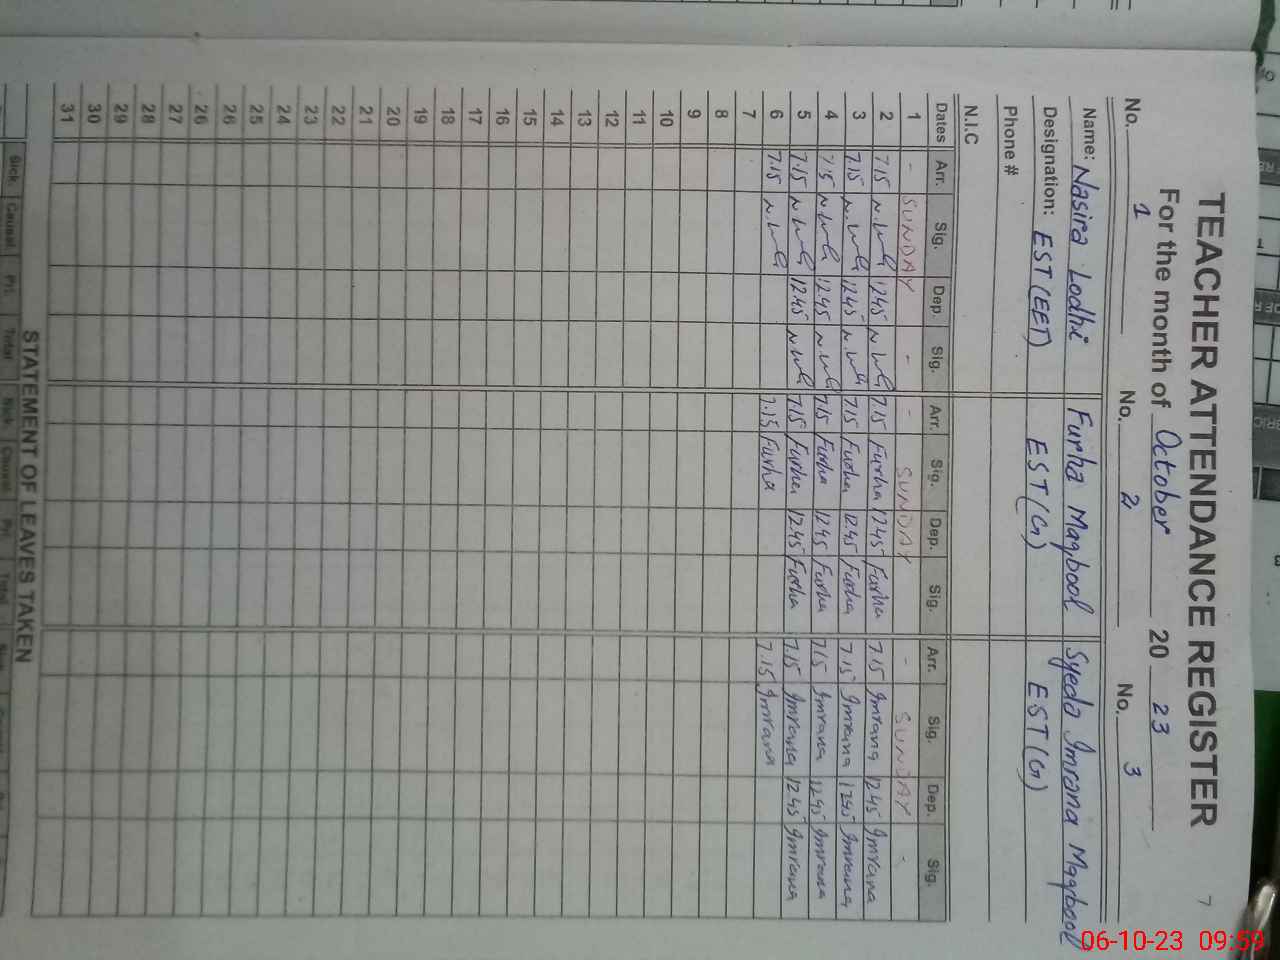 7
TEACHER ATTENDANCE REGISTER
For the month of October 20 23
No. 1 No. 2 No. 3
Name: Nasira Lodhi Furha Maqbool Syeda Imrana Maqbool
Designation: EST (EET) EST (G) EST (G)
Phone #
N.I.C
Dates Arr. Sig. Dep. Sig. Arr. Sig. Dep. Sig. Arr. Sig. Dep. Sig.
1 - SUNDAY - - SUNDAY - SUNDAY -
2 7.15 12.45 7.15 Furha 12.45 Furha 7.15 Imrana 12.45 Imrana
3 7.15 12.45 7.15 Furha 12.45 Furha 7.15 Imrana 12.45 Imrana
4 7.15 12.45 7.15 Furha 12.45 Furha 7.15 Imrana 12.45 Imrana
5 7.15 12.45 7.15 Furha 12.45 Furha 7.15 Imrana 12.45 Imrana
6 7.15 7.15 Furha 7.15 Imrana
7
8
9
10
11
12
13
14
15
16
17
18
19
20
21
22
23
24
25
26
26
27
28
29
30
31
STATEMENT OF LEAVES TAKEN
Sick Causal Pri. Total Sick Causal Pri. Total
06-10-23 09:59